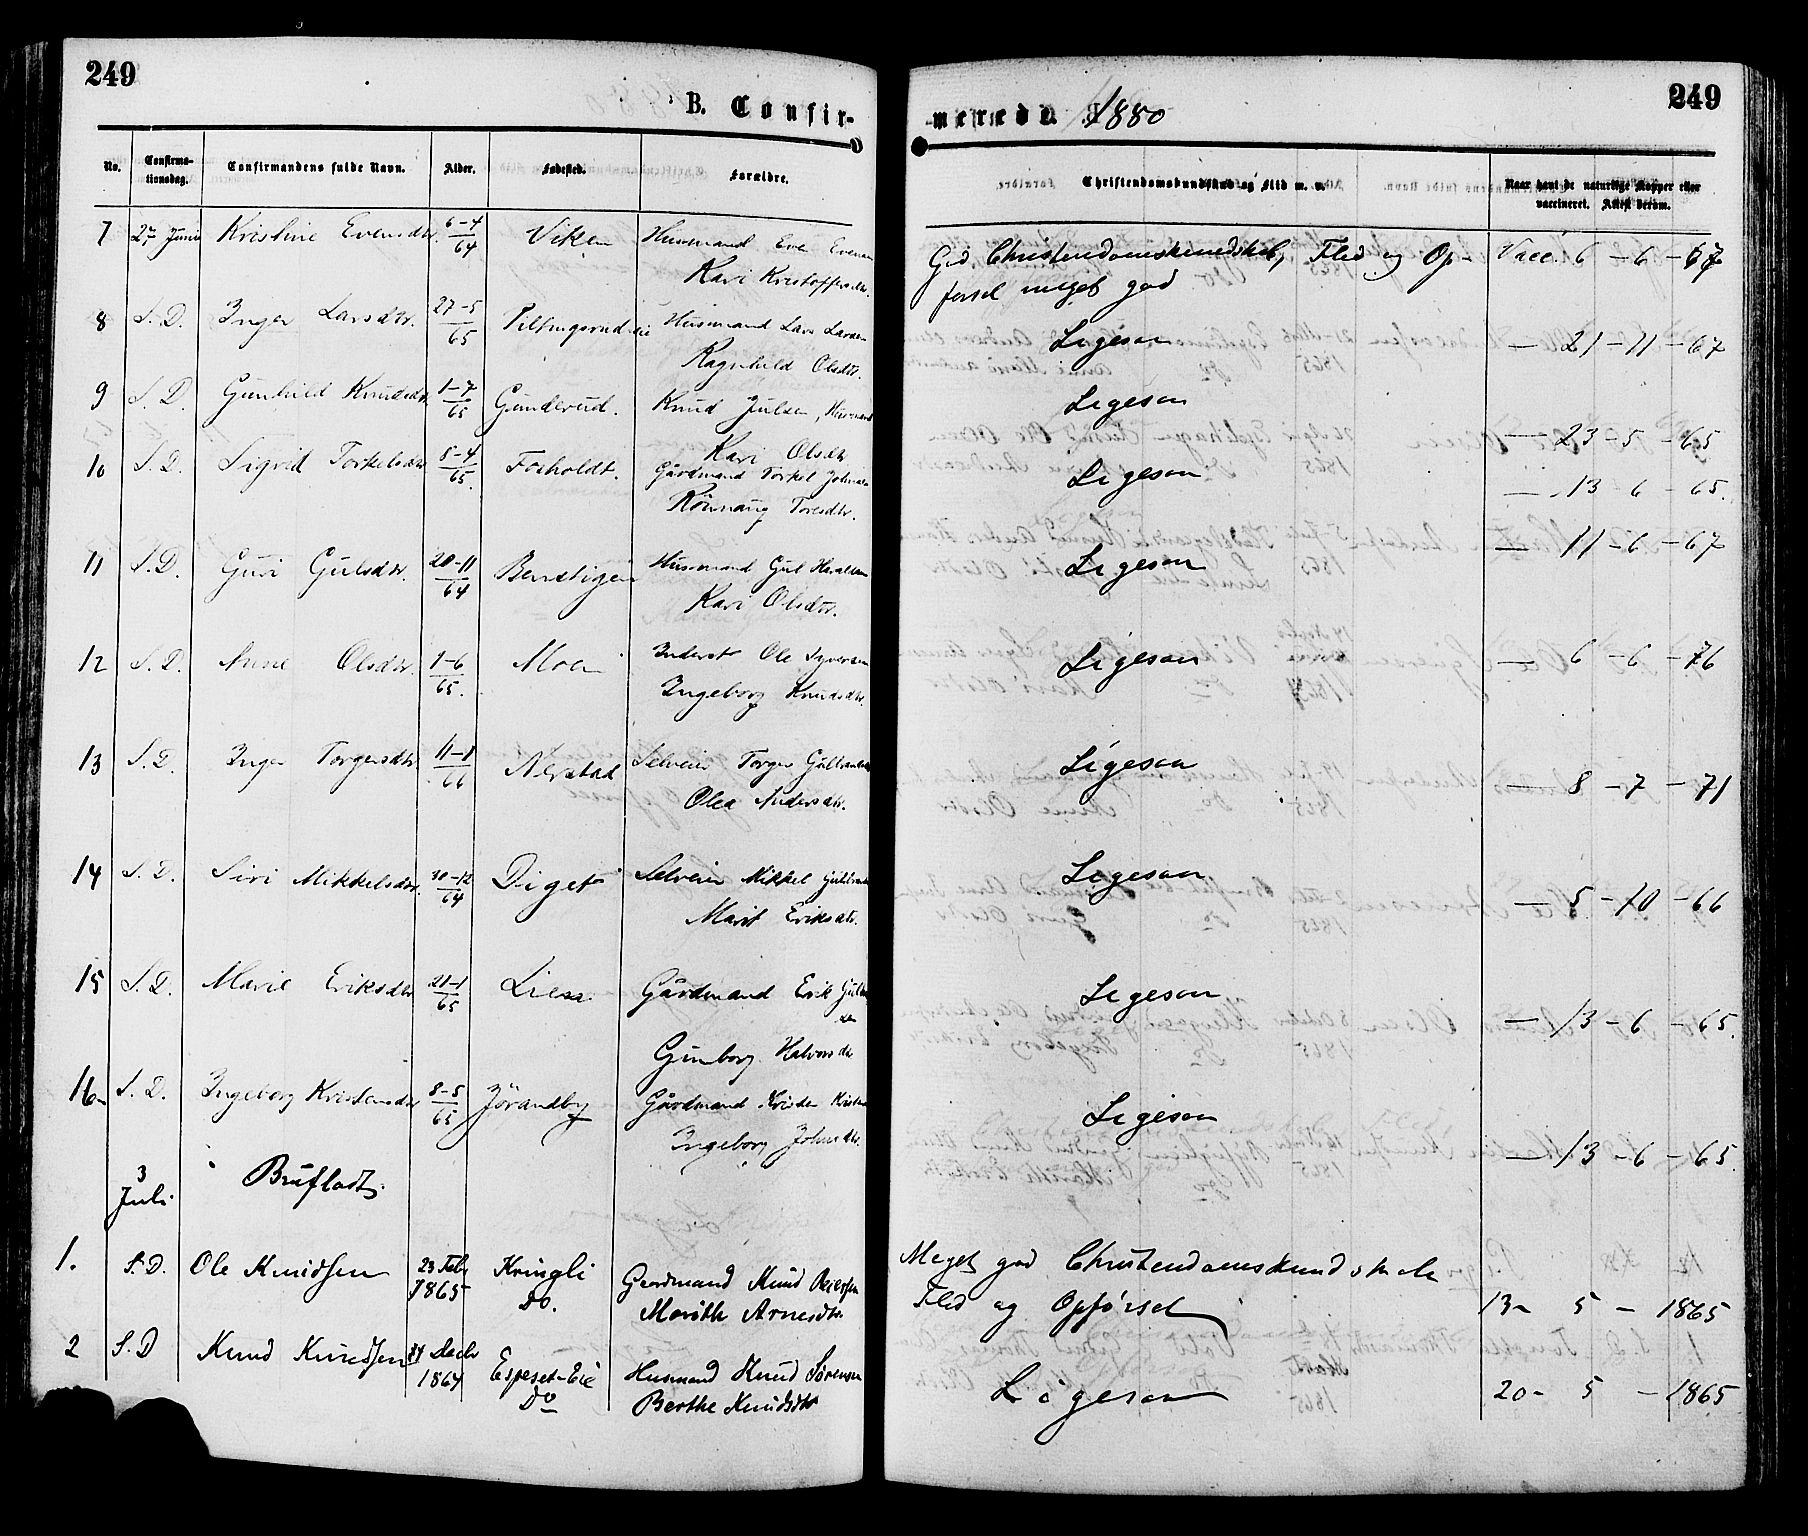 249
B. Confir-
No. Confirma-tionsdag. Confirmandens fulde Navn. Alder. Fødested. Forældre.
7 27 Juni Kristine Evensdtr. 6-4/64 Viken Husmand Even Evensen
Kari Kristoffersdtr.
8 S. D. Inger Larsdtr. 27-5/65 Husmand Lars Larsen
Ragnhild Olsdtr.
9 S. D. Gunhild Knudsdtr. 1-7/65 Gunderud. Knud Julsen, Husmand
Kari Olsdtr
10 S. D. Sigrid Torkelsdtr 5-4/65. Fosholdt. Gårdmand Torkel Johnsen
Rönnaug Toresdtr.
11 S. D. Guri Gulsdtr. 20-11/64 Husmand Gul
Kari Olsdtr.
12 S. D. Anne Olsdtr. 1-6/65. Moen Inderst Ole Syversen
Ingeborg Knudsdtr.
13 S. D. Inger Torgersdtr. 11-1/66 Nerstad Selveier Torger
Olea Andersdtr.
14 S. D. Siri Mikkelsdtr. 30-12/64 Diget Selveier Mikkel
Marit Eriksdtr.
15 S. D. Marie Eriksdtr 21-1/65 Lien Gårdmand Erik
Gunborg Halvorsdtr
16 S. D. Ingeborg Kristensdtr 8-5/65 Jörandby Gårdmand Kristen
Ingeborg Johnsdtr.
3 Juli Brufladt.
1. S. D. Ole Knudsen 23 Febr 1865 Kringli Do. Gaardmand Knud
Marithe Arnesdtr.
2 S. D Knud Knudsen Decbr 1864 Espeset-Eie Do Husmand Knud Sørensen
Berthe Knudsdtr
249
merede. 1880
Christendomskundskab og Flid m. v. Naar havt de naturlige Kopper eller vaccineret. Attest derom.
God Christendomskundskab, Flid og Op- Vacc. 6 - 6 - 67
førsel meget god
Ligesaa — 21 - 11 - 67
Ligesaa — 23 - 5 - 65
Ligesaa — 13 - 6 - 65.
Ligesaa — 11 - 6 - 67
Ligesaa — 6 - 6 - 76
Ligesaa — 8 - 7 - 71
Ligesaa — 5 - 10 - 66
Ligesaa — 13 - 6 - 65.
Ligesaa — 13 - 6 - 65.
Meget god Christendomskundskab
Flid og Opførsel 13- 5 - 1865
Ligesaa 20- 5 - 1865